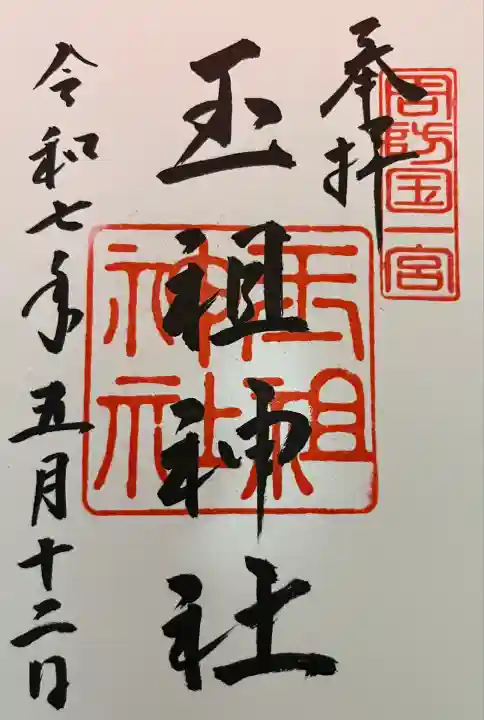 周防国一宮
奉拝
玉祖神社
玉祖神社
令和七年五月十二日